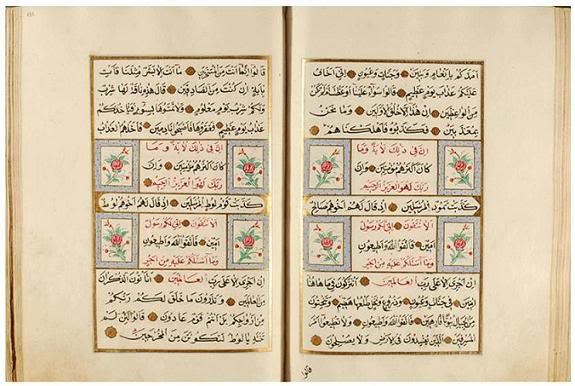 امدكم بانعام وبنين وجنات وعيون اني اخاف
عليكم عذاب يوم عظيم قالوا سواء علينا اوعظت ام لم تكن
من الواعظين ان هذا الا خلق الاولين وما نحن
بمعذبين فكذبوه فاهلكناهم
ان في ذلك لاية وما
كان اكثرهم مؤمنين وان
ربك لهو العزيز الرحيم
كذبت ثمود المرسلين اذ قال لهم اخوهم صالح
الا تتقون اني لكم رسول
امين فاتقوا الله واطيعون
وما اسئلكم عليه من اجر
ان اجري الا على رب العالمين اتتركون في ما هاهنا
امنين في جنات وعيون وزروع ونخل طلعها هضيم وتنحتون
من الجبال بيوتا فارهين فاتقوا الله واطيعون ولا تطيعوا امر
المسرفين الذين يفسدون في الارض ولا يصلحون
قالوا
قالوا انما انت من المسحرين ما انت الا بشر مثلنا فات
باية ان كنت من الصادقين قال هذه ناقة لها شرب
ولكم شرب يوم معلوم ولا تمسوها بسوء فياخذكم
عذاب يوم عظيم فعقروها فاصبحوا نادمين فاخذهم العذاب
ان في ذلك لاية وما
كان اكثرهم مؤمنين وان
ربك لهو العزيز الرحيم
كذبت قوم لوط المرسلين اذ قال لهم اخوهم لوط
الا تتقون اني لكم رسول
امين فاتقوا الله واطيعون
وما اسئلكم عليه من اجر
ان اجري الا على رب العالمين اتاتون الذكران
من العالمين وتذرون ما خلق لكم ربكم
من ازواجكم بل انتم قوم عادون قالوا لئن لم
تنته يا لوط لتكونن من المخرجين